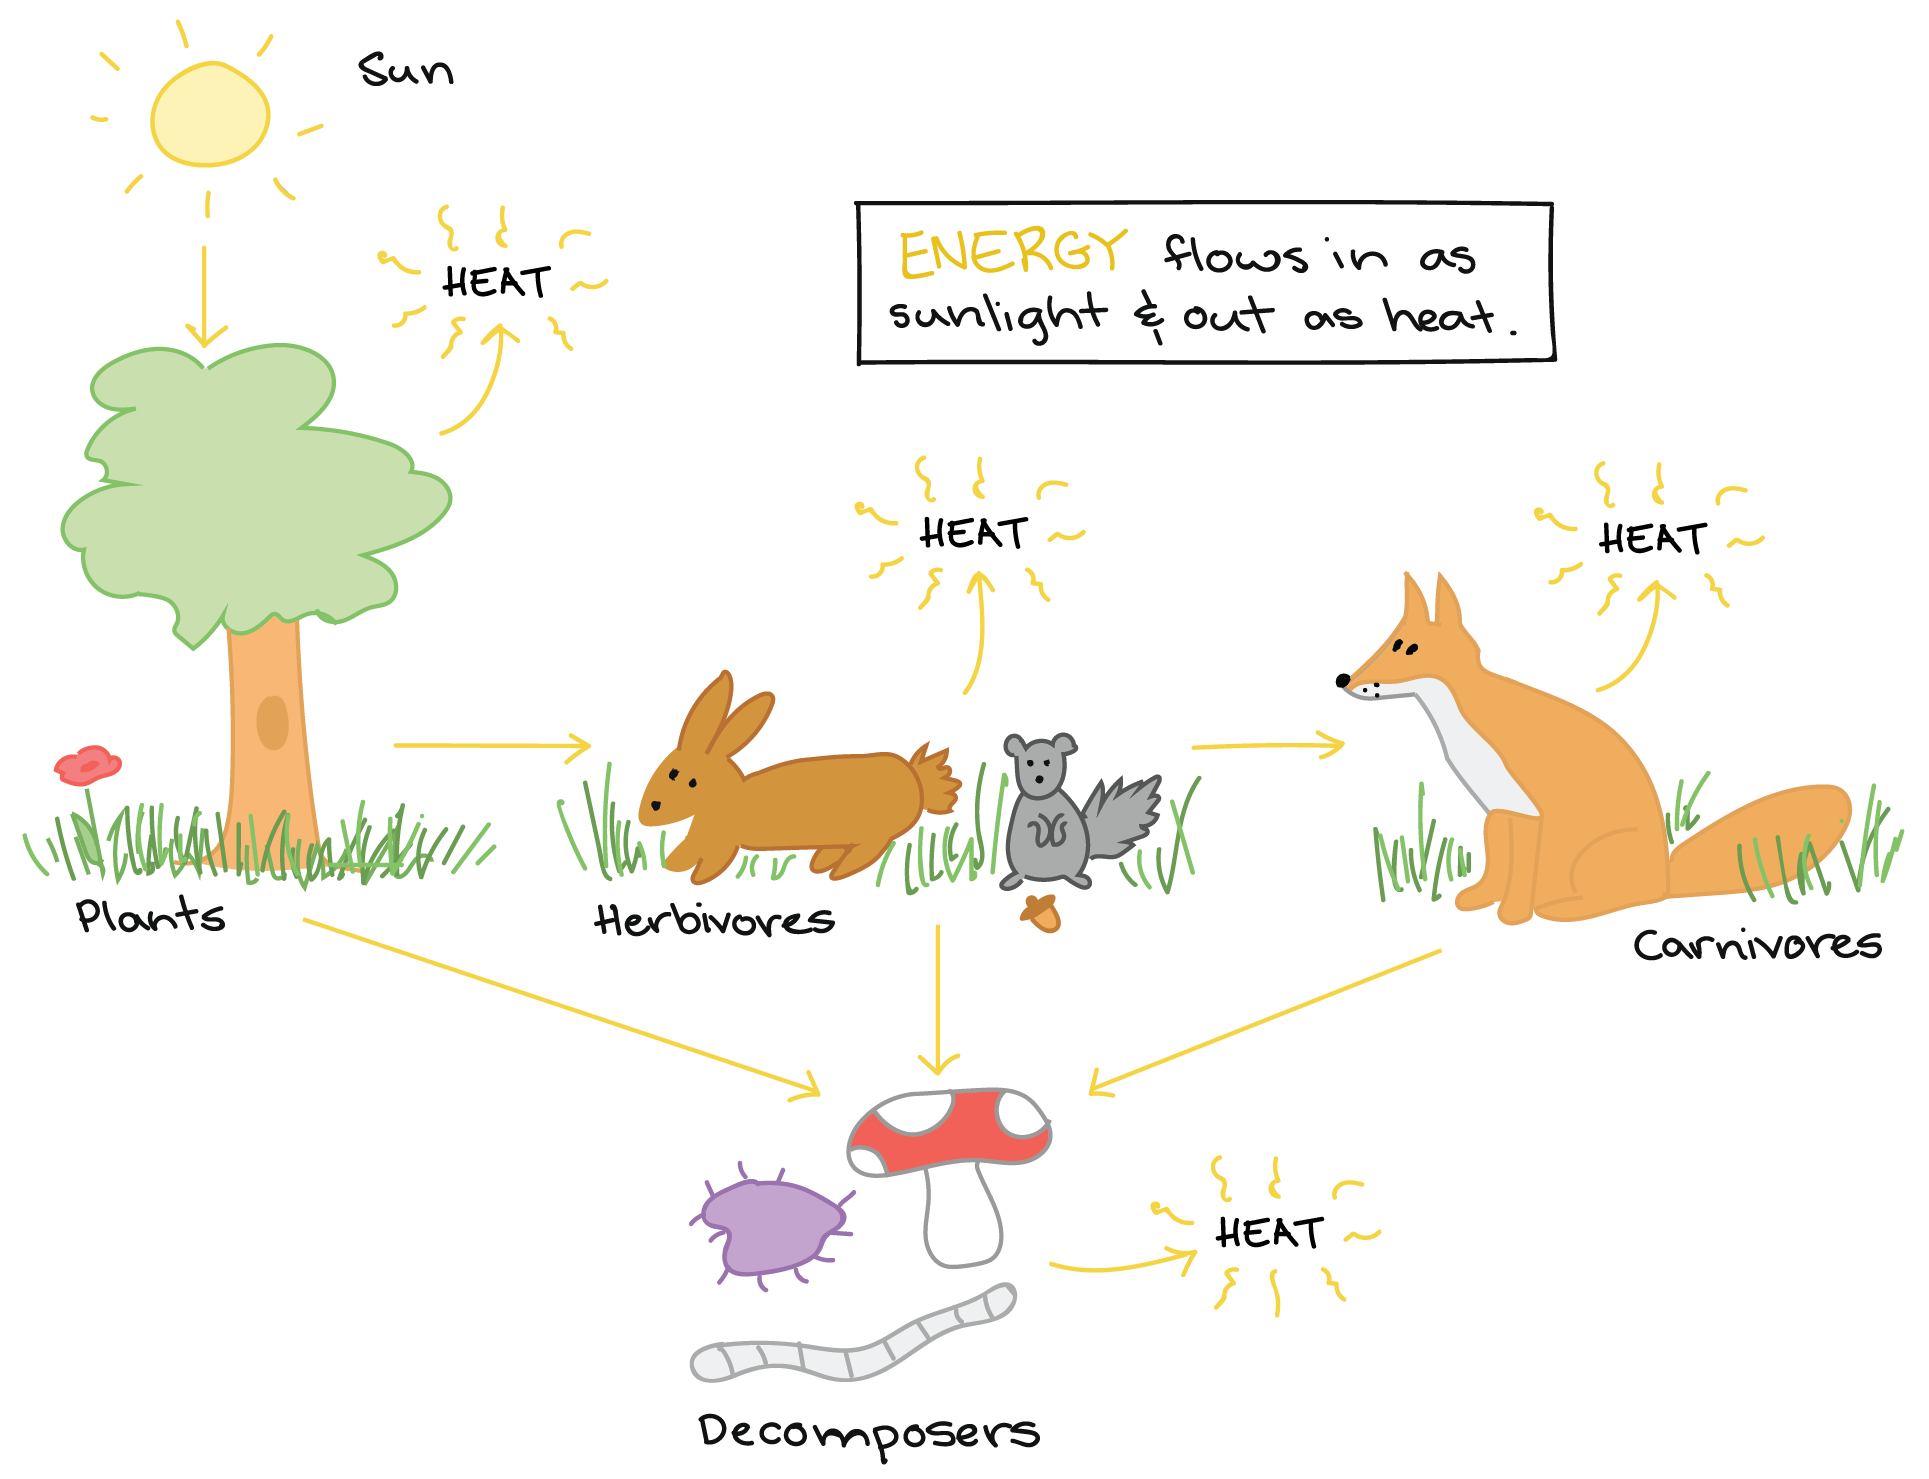 Sun
HEAT
ENERGY flows in as
sunlight & out as heat.
HEAT
HEAT
Plants
Herbivores
Carnivores
HEAT
Decomposers